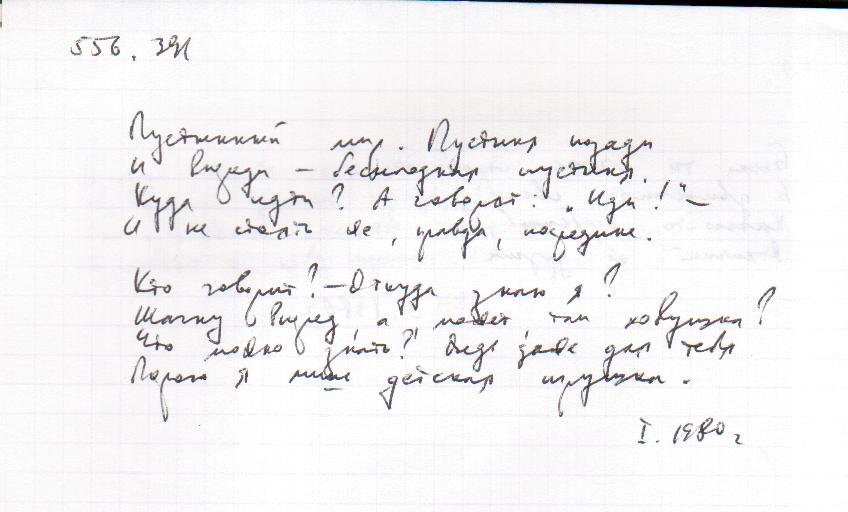 556. 391
Пустынный мир. Пустыня позади
И впереди — бесплодная пустыня.
Куда идти? А говорят: „Иди!“ —
И не стоять же, правда, посредине.
Кто говорит? — Откуда знаю я?
Шагну вперёд, а, может, там ловушка?
Что можно знать? Ведь даже для тебя
Порою я лишь детская игрушка.
I. 1980 г